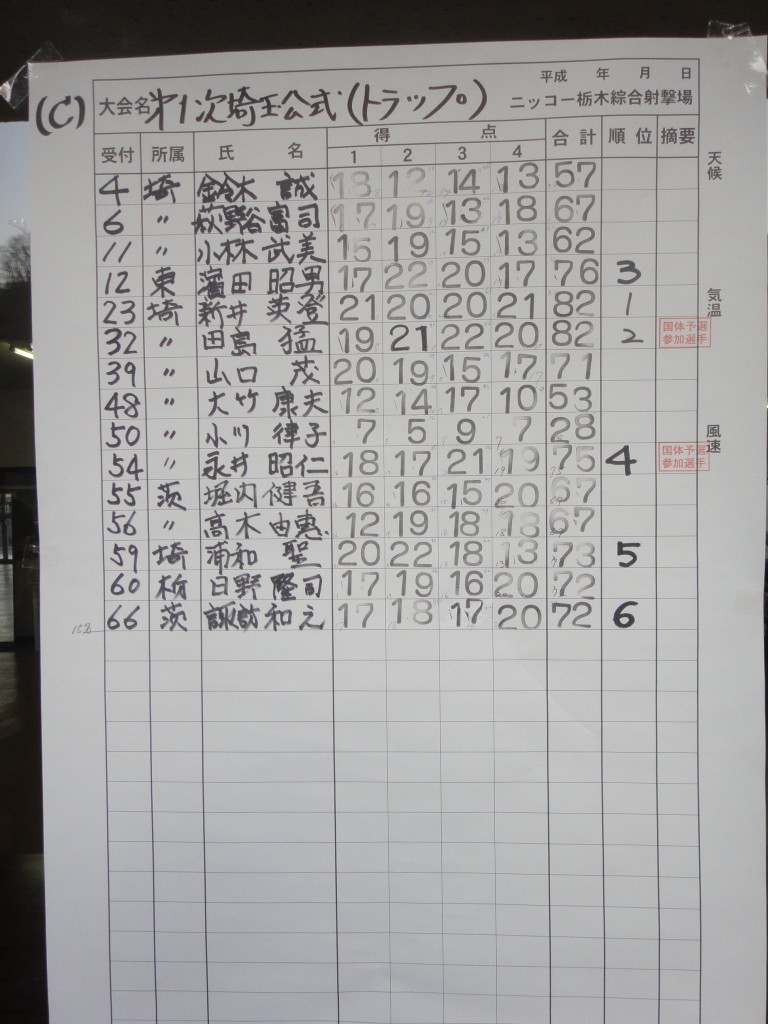 (C)
平成 年 月 日
大会名 第1次埼玉公式(トラップ) ニッコー栃木綜合射撃場
受付 所属 氏 名 得 点 合計 順位 摘要
1 2 3 4
天候
4 埼 鈴木 誠 18 12 14 13 57
6 〃 萩野谷富司 17 19 13 18 67
11 〃 小林武美 15 19 15 13 62
12 東 濱田昭男 17 22 20 17 76 3
気温
23 埼 新井英登 21 20 20 21 82 1
32 〃 田島 猛 19 21 22 20 82 2 国体予選参加選手
39 〃 山口 茂 20 19 15 17 71
48 〃 大竹康夫 12 14 17 10 53
風速
50 〃 小川律子 7 5 9 7 28
54 〃 永井昭仁 18 17 21 19 75 4 国体予選参加選手
55 茨 堀内健吾 16 16 15 20 67
56 〃 高木由恵 12 19 18 18 67
59 埼 浦和 聖 20 22 18 13 73 5
60 栃 日野隆司 17 19 16 20 72
66 茨 諏訪和元 17 18 17 20 72 6